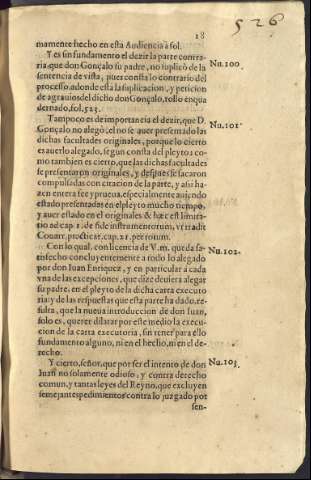 526
18
mamente hecho en esta Audiencia à fol.
Y es sin fundamento el dezir la parte contra-
ria, que don Gonçalo su padre, no suplicò de la Nu. 100
sentencia de vista, pues consta lo contrario del
processo, adonde esta la suplicacion, y peticion
de agrauios del dicho don Gonçalo, rollo enqua
dernado, fol. 523.
Tampoco es de importancia el dezir, que D. Nu. 101
Gonçalo no alegò, el no se auer presentado las
dichas facultades originales, porque lo cierto
es auerlo alegado, segun consta del pleyto: co-
mo tambien es cierto, que las dichas facultades
se presentaron originales, y despues se sacaron
compulsadas con citacion de la parte, y assi ha-
zen entera fee y prueua, especialmente auiendo
estado presentadas en el pleyto mucho tiempo,
y auer estado en el originales & hæc est limita-
tio ad cap. 1. de fide instrumentorum, vt tradit
Couarr. practicar. cap. 21. per totum.
Con lo qual, con licencia de V.m. queda sa- Nu. 102
tisfecho concluyentemente a todo lo alegado
por don Iuan Enriquez, y en particular a cada
vna de las excepciones, que dize deuiera alegar
su padre, en el pleyto de la dicha carta executo
ria: y de las respuestas que esta parte ha dado, re-
sulta, que la nueua introduccion de don Iuan,
solo es, querer dilatar por este medio la execu-
cion de la carta executoria, sin tener para ello
fundamento alguno, ni en el hecho, ni en el de-
recho.
Y cierto, señor, que por ser el intento de don Nu. 103
Iuan no solamente odioso, y contra derecho
comun, y tantas leyes del Reyno, que excluyen
semejantes pedimientos contra lo juzgado por
sen-